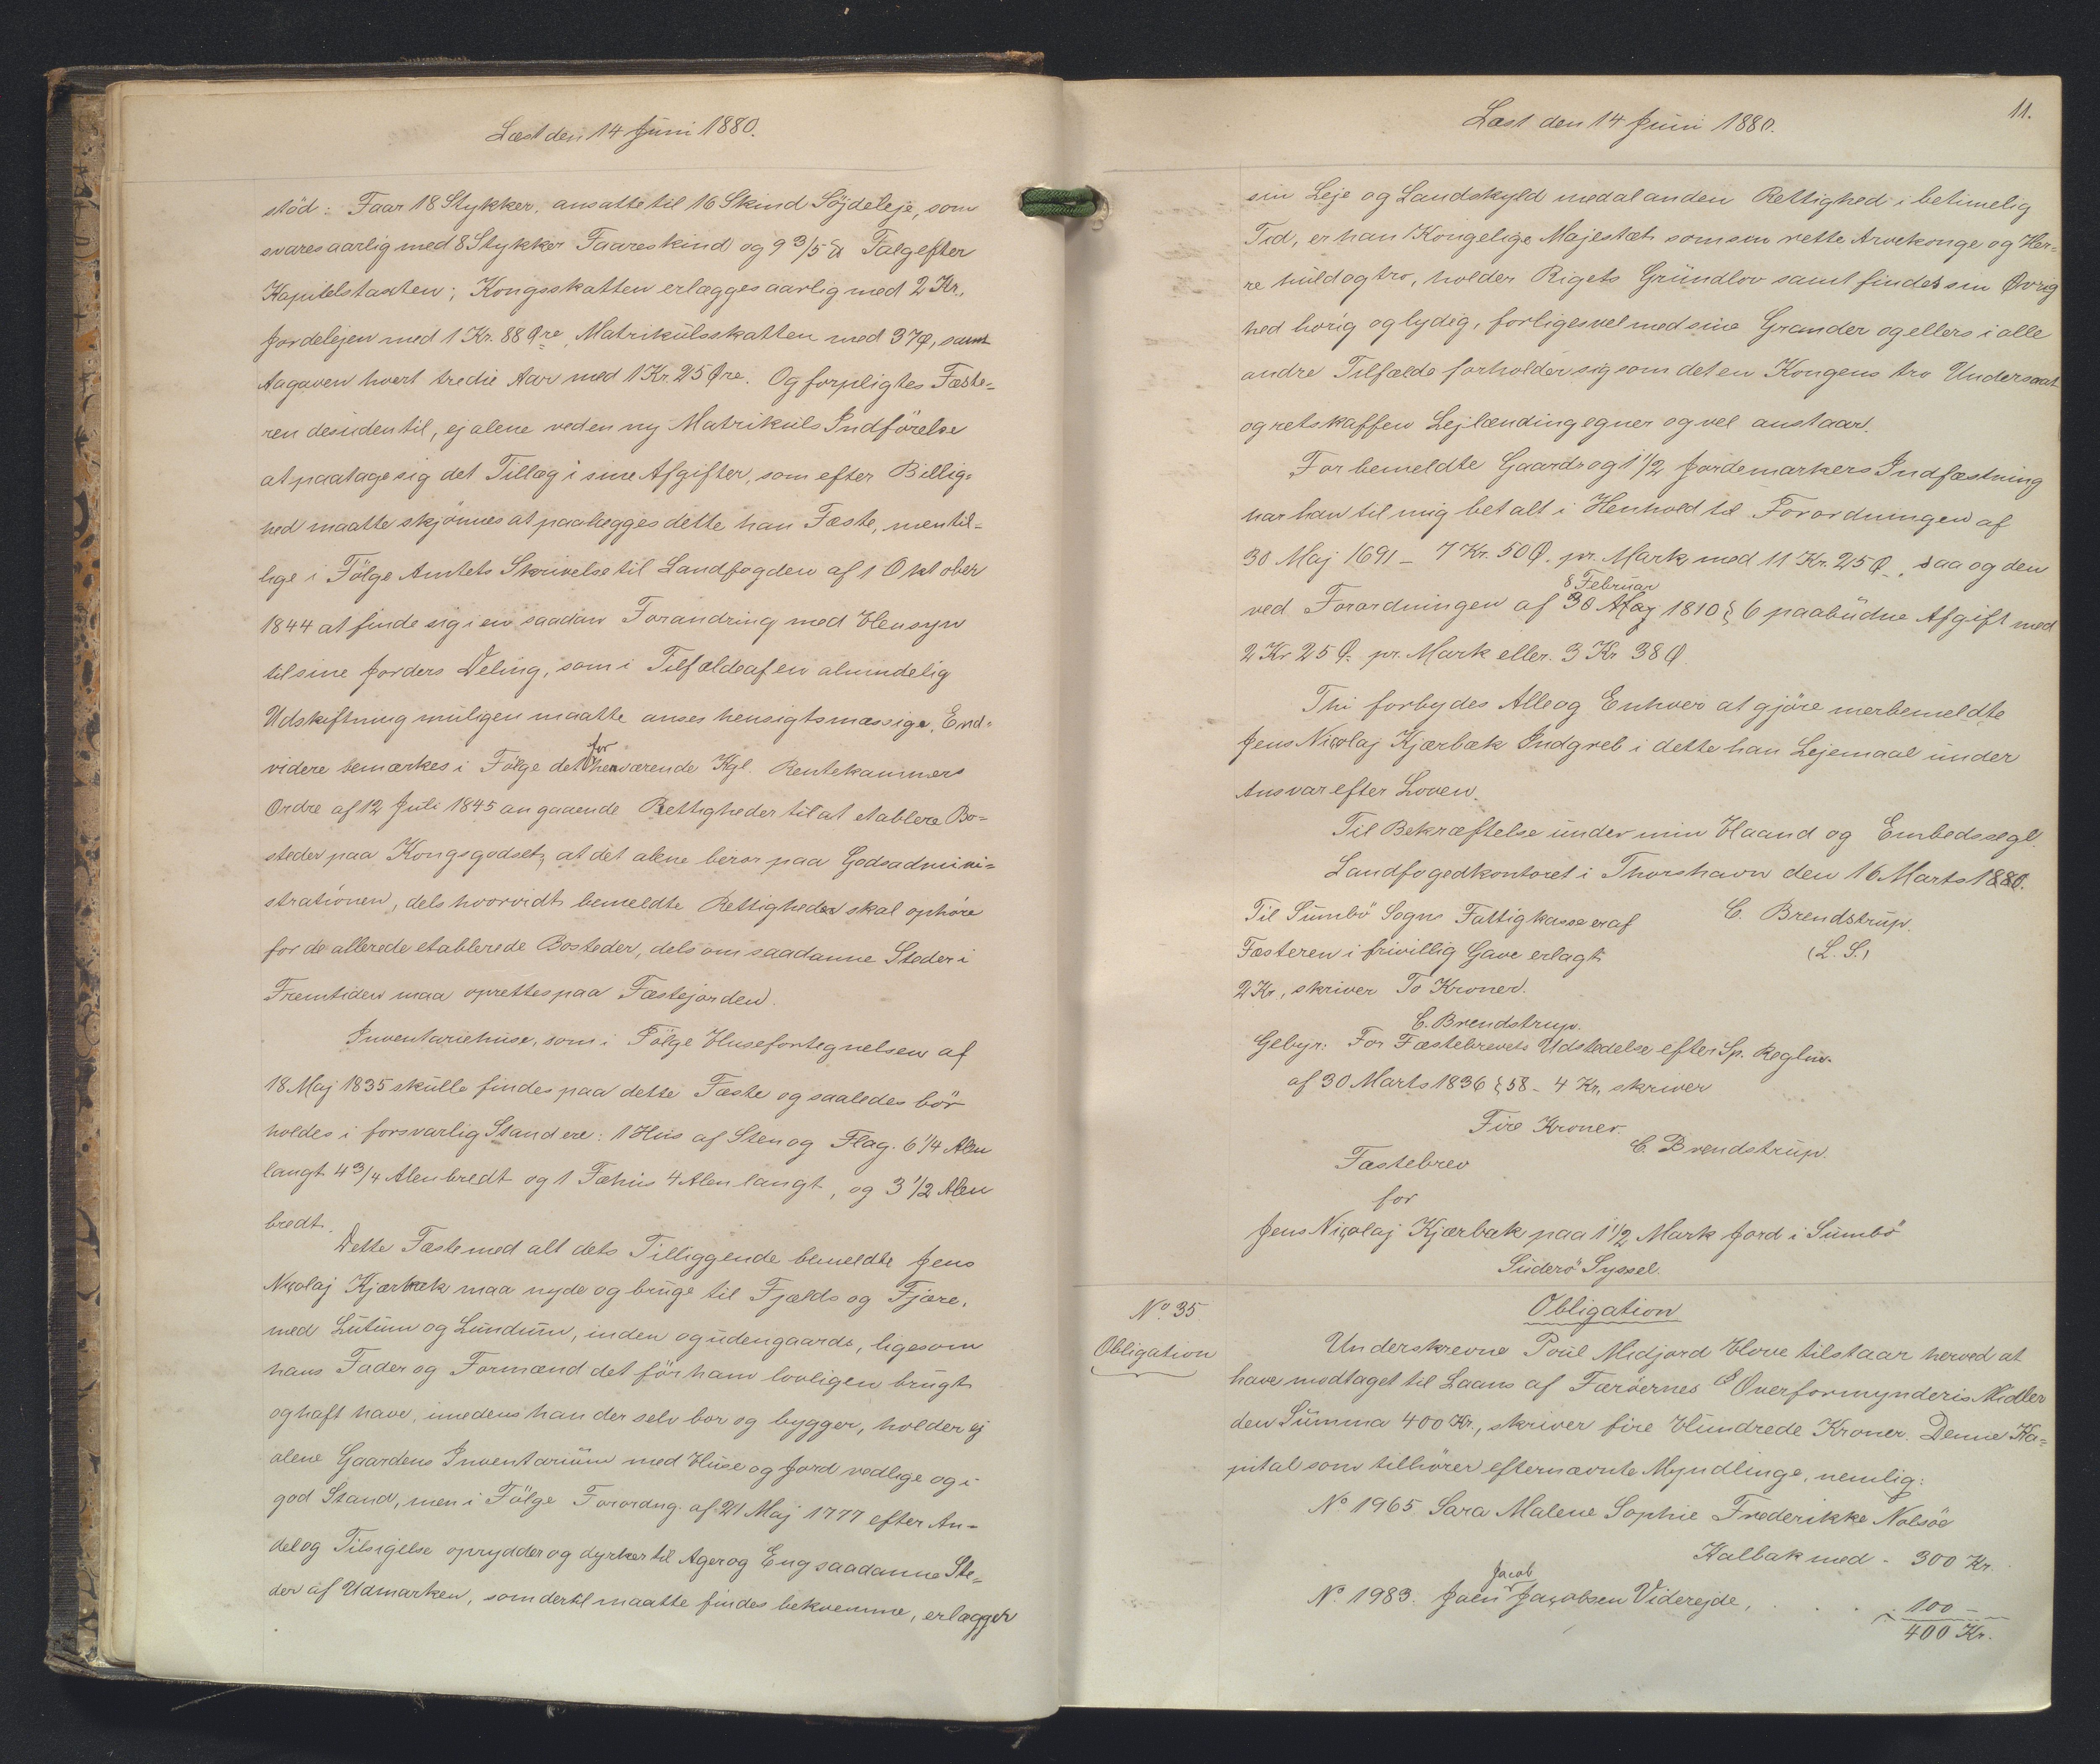 Læst den 14 Juni 1880.
stöd: Faar 18 Stykker, ansatte til 16 Skind Söjdeleje, som
svares aarlig med 8 Stykker Faareskind og 9 3/5 ℔ Talg efter
Kapitelstaxten; Kongsskatten erlægges aarlig med 2 Kr.,
Jordelejen med 1 Kr. 88 Øre, Matrikulsskatten med 37 Ø, samt
Aagaven hvert tredie Aar med 1 Kr. 25 Øre. Og forpligtes Fæste=
ren desuden til, ej alene ved en ny Matrikuls Indförelse
at paatage sig det Tillæg i sine Afgifter, som efter Billig=
hed maatte skjönnes at paalægges dette han Fæste, men til=
lige i Fölge Amtets Skrivelse til Landfogden af 1 Oktober
1844 at finde sig i en saadan Forandring med Hensyn
til sine Jorders Deling, som i Tilfælde af en almindelig
Udskiftning muligen maatte anses hensigtsmæssige. End=
videre bemærkes i Fölge det forhenværende Kgl. Rentekammers
Ordre af 12 Juli 1845 angaaende Rettigheder til at etablere Bo=
steder paa Kongsgodset, at det alene beror paa Godsadmini=
strationen, dels hvorvidt bemeldte Rettigheder skal ophöre
for de allerede etablerede Bosteder, dels om saadanne Steder i
Fremtiden maa oprettes paa Fæstejorden.
Inventariehuse, som i Fölge Husefortegnelsen af
18 Maj 1835 skulle findes paa dette Fæste og saaledes bör
holdes i forsvarlig Stand ere: 1 Hus af Sten og Flag. 6 1/4 Alen
langt 4 3/4 Alen bredt og 1 Fæhus 4 Alen langt, og 3 1/2 Alen
bredt.
Dette Fæste med alt dets Tilliggende bemeldte Jens
Nicolaj Kjærbæk maa nyde og bruge til Fjælds og Fjære,
med Lutum og Lundum, inden og udengaards, ligesom
hans Fader og Formænd det för ham lovligen brugt
og haft have, imedens han der selv bor og bygger, holder ej
alene Gaardens Inventarium med Huse og Jord vedlige og i
god Stand, men i Fölge Forordng. af 21 Maj 1777 efter An=
del og Tilsigelse oprydder og dyrker til Ager og Eng saadanne Ste=
der af Udmarken, som dertil maatte findes bekvemme, erlægger
Læst den 14 Juni 1880.
11.
sin Leje og Landskyld med al anden Rettighed i betimelig
Tid, er han Kongelige Majestæt som sin rette Arvekonge og Her=
re huld og tro, holder Rigets Grundlov samt findes sin Øvrig
hed hörig og lydig, forliges vel med sine Grander og ellers i alle
andre Tilfælde forholder sig som det en Kongens tro Undersaat
og retskaffen Lejlænding egner og vel anstaar.
For bemeldte Gaard og 1 1/2 Jordemarkers Indfæstning
har han til mig betalt i Henhold til Forordningen af
30 Maj 1691 - 7 Kr. 50 Ø. pr. Mark med 11 Kr. 25 Ø., saa og den
8 Februar
ved Forordningen af 30 May 1810 § 6 paabudne Afgift med
2 Kr 25 Ø. pr. Mark eller 3 Kr 38 Ø.
Thi forbydes Alle og Enhver at gjöre merbemeldte
Jens Nicolaj Kjærbæk Indgreb i dette han Lejemaal under
Ansvar efter Loven.
Til Bekræftelse under min Haand og Embedssegl.
Landfogedkontoret i Thorshavn den 16 Marts 1880.
Til Sumbö Sogns Fattigkasse er af C. Brendstrup.
Fæsteren i frivillig Gave erlagt (L. S.)
2 Kr, skriver To Kroner.
C. Brendstrup.
Gebyr: For Fæstebrevets Udstedelse efter Sp. Reglm.
af 30 Marts 1836 § 58 - 4 Kr, skriver
Fire Kroner.
C. Brendstrup.
Fæstebrev
for
Jens Nicolaj Kjærbæk paa 1 1/2 Mark Jord i Sumbö
Suderö Syssel.
No. 35.
Obligation
Obligation
Underskrevne Poul Midjord Hove tilstaar herved at
have modtaget til Laans af Færöernes Overformynderis Midler
den Summa 400 Kr., skriver fire Hundrede Kroner. Denne Ka=
pital som tilhörer efternævnte Myndlinge, nemlig:
No 1965 Sara Malene Sophie Frederikke Nolsöe
Kalbak med - 300 Kr.
Jacob
No 1983. Joen Jacobsen Viderejde, . . . . 100 -
400 Kr.